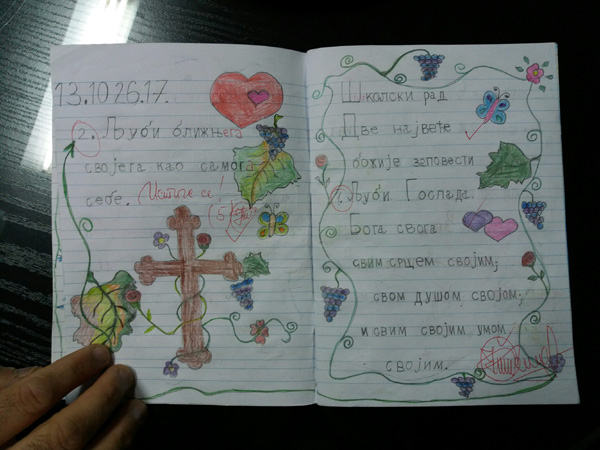 13.10 26.17.
2. Љуби ближњега
својега као самога
себе. Истиче се!
(5)
Школски рад
Две највеће
божије заповести
1. Љуби Господа
Бога свога
свим срцем својим;
свом душом својом;
и свим својим умом
својим.